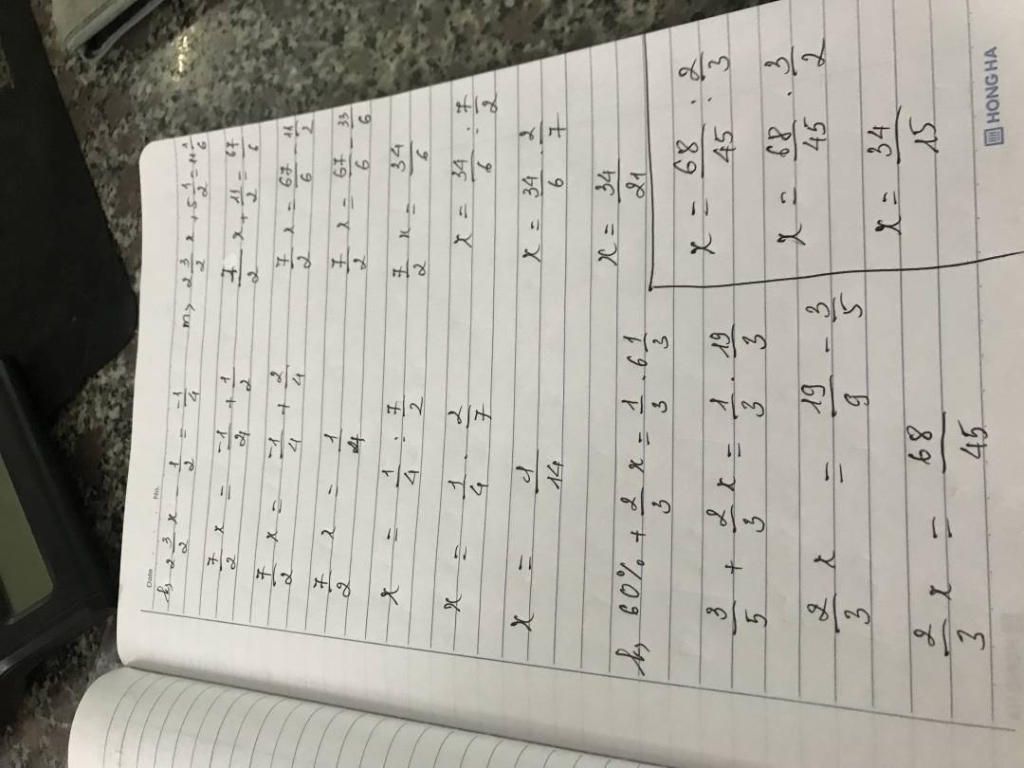 Date No.
h, 2 3/2 x - 1/2 = -1/4
7/2 x = -1/4 + 1/2
7/2 x = -1/4 + 2/4
7/2 x = 1/4
x = 1/4 : 7/2
x = 1/4 . 2/7
x = 1/14
m, 2 3/2 x + 5 1/2 = 11 1/6
7/2 x + 11/2 = 67/6
7/2 x = 67/6 - 11/2
7/2 x = 67/6 - 33/6
7/2 x = 34/6
x = 34/6 : 7/2
x = 34/6 . 2/7
x = 34/21
k, 60% + 2/3 x = 1/3 . 6 1/3
3/5 + 2/3 x = 1/3 . 19/3
2/3 x = 19/9 - 3/5
2/3 x = 68/45
x = 68/45 : 2/3
x = 68/45 . 3/2
x = 34/15
HONG HA